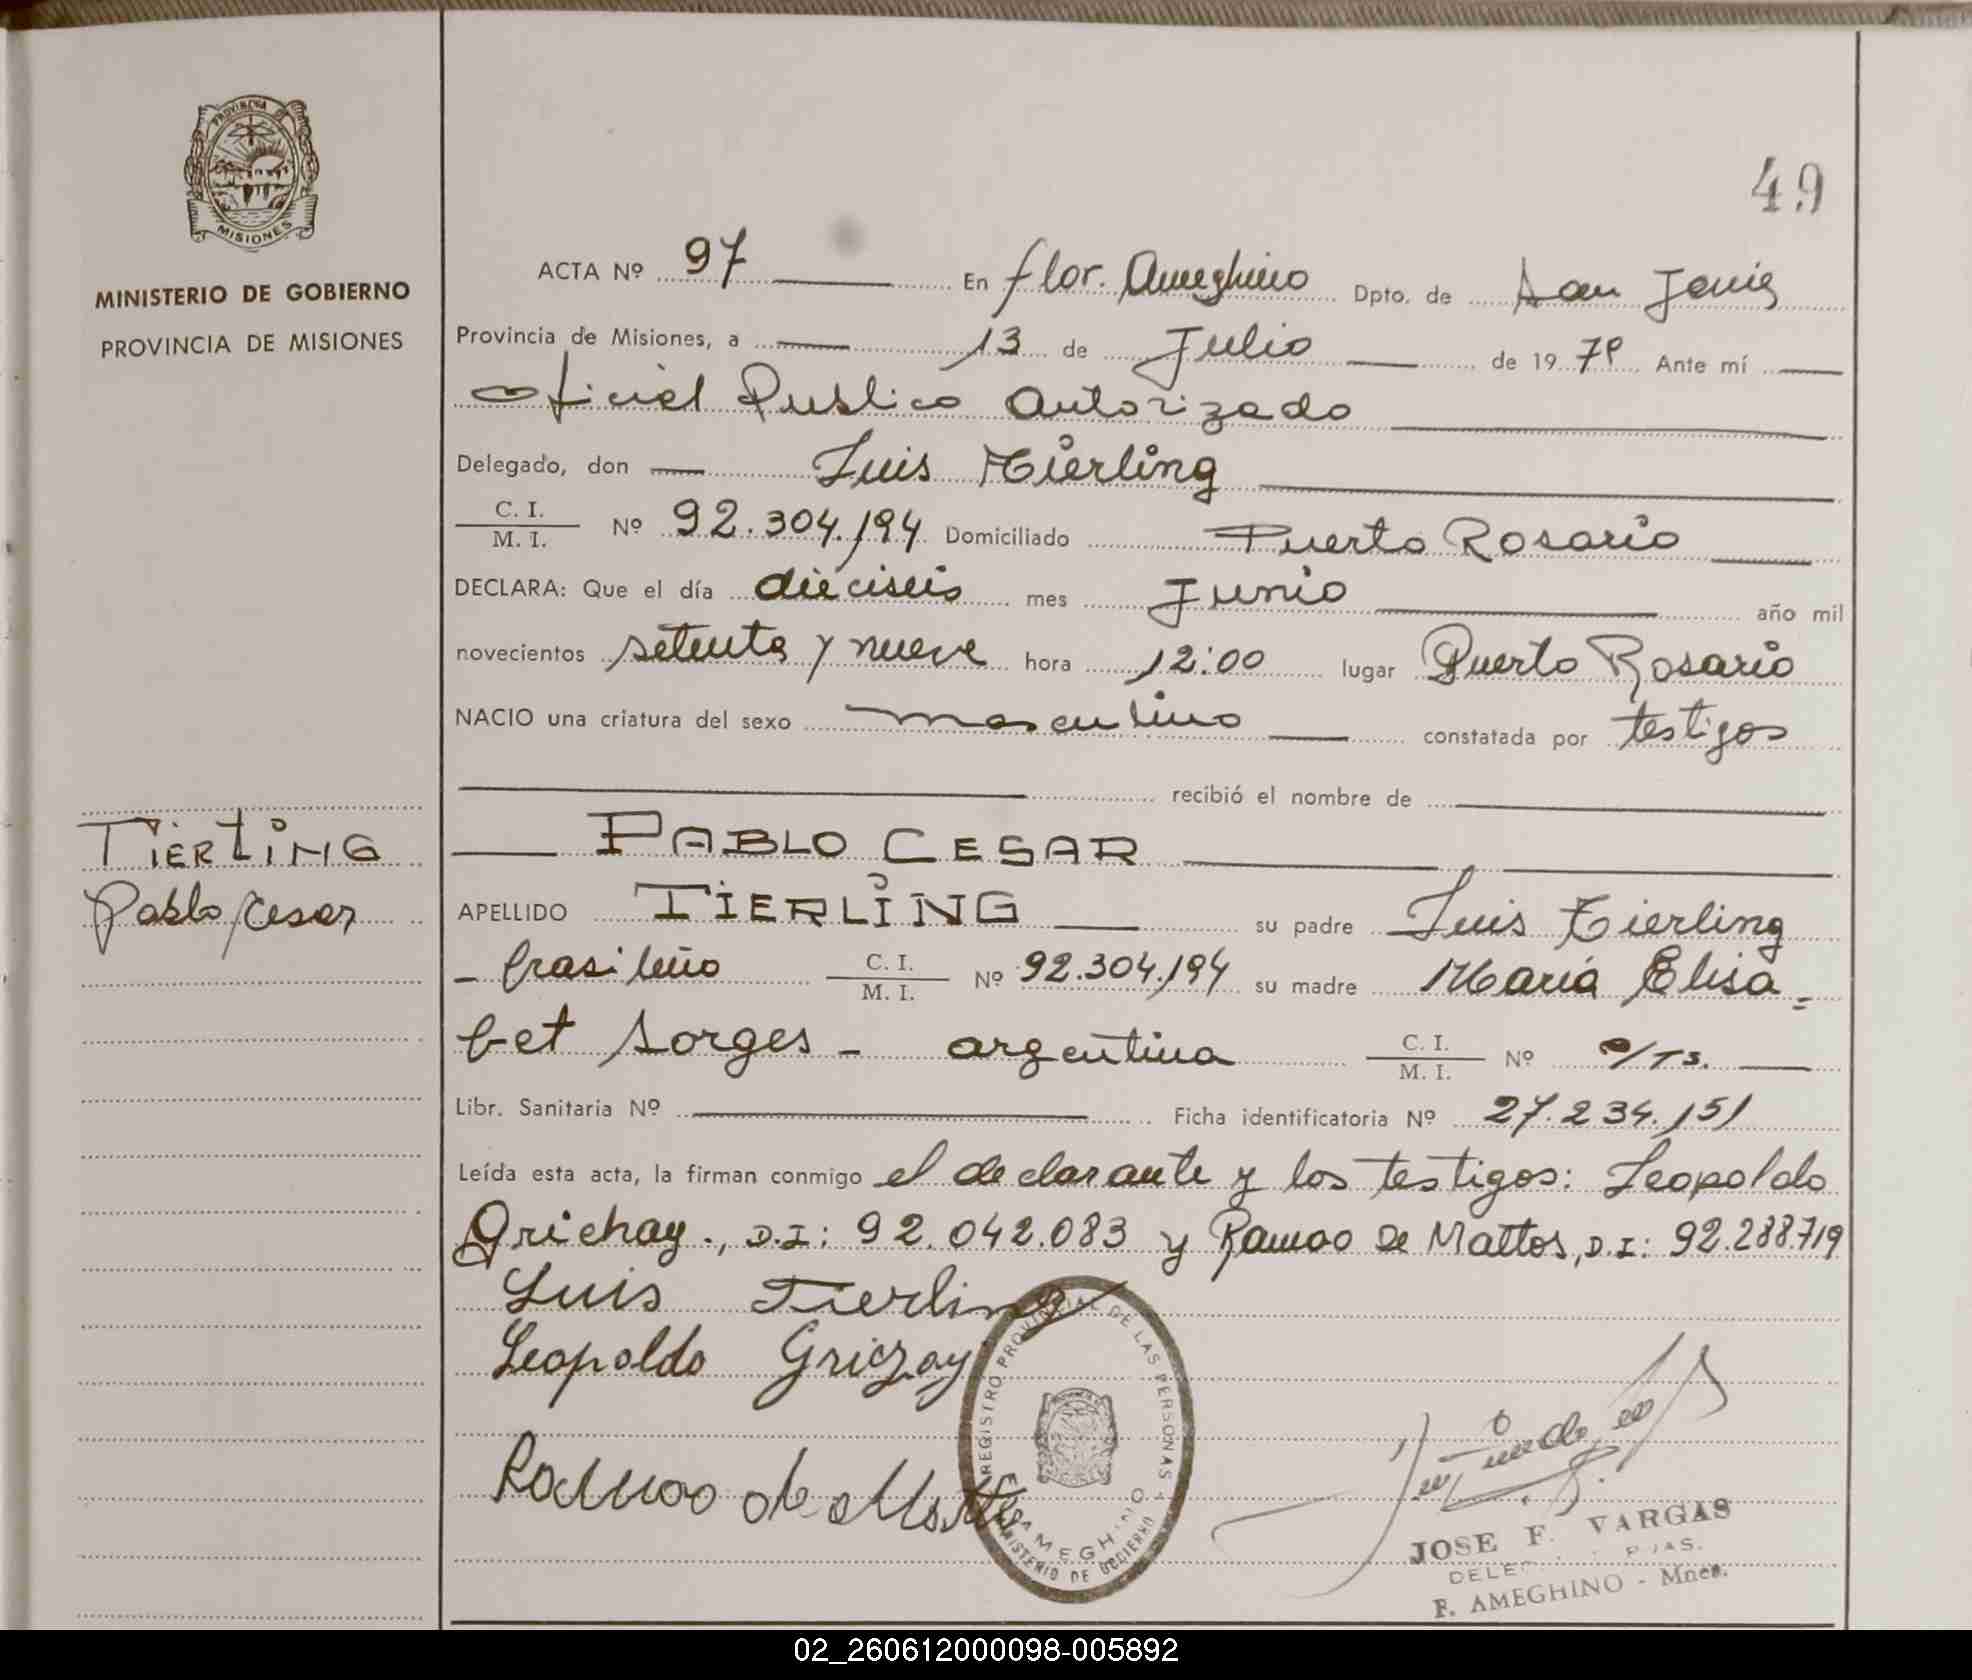 PROVINCIA DE
MISIONES
MINISTERIO DE GOBIERNO
PROVINCIA DE MISIONES
49
ACTA Nº 97 En flor. Ameghino Dpto. de San Javier
Provincia de Misiones, a 13 de Julio de 1979 Ante mí
Oficial Publico Autorizado
Delegado, don Luis Tierling
C. I.
M. I. Nº 92.304.194 Domiciliado Puerto Rosario
DECLARA: Que el día dieciseis mes Junio año mil
novecientos setenta y nueve hora 12:00 lugar Puerto Rosario
NACIO una criatura del sexo masculino constatada por testigos
recibió el nombre de
PABLO CESAR
TIERLING
Pablo Cesar
APELLIDO TIERLING su padre Luis Tierling
- brasileño C. I.
M. I. Nº 92.304.194 su madre María Elisa=
bet Sorges - argentina C. I.
M. I. Nº
Libr. Sanitaria Nº Ficha identificatoria Nº 27.234.151
Leída esta acta, la firman conmigo el declarante y los testigos: Leopoldo
Grichay., D.I: 92.042.083 y Ramao De Mattos, D.I: 92.288719
Luis Tierling
Leopoldo Griczay
Ramao de Mattos
REGISTRO PROVINCIAL DE LAS PERSONAS
AMEGHINO
MINISTERIO DE GOBIERNO
JOSE F. VARGAS
F. AMEGHINO - Mnes.
02_260612000098-005892